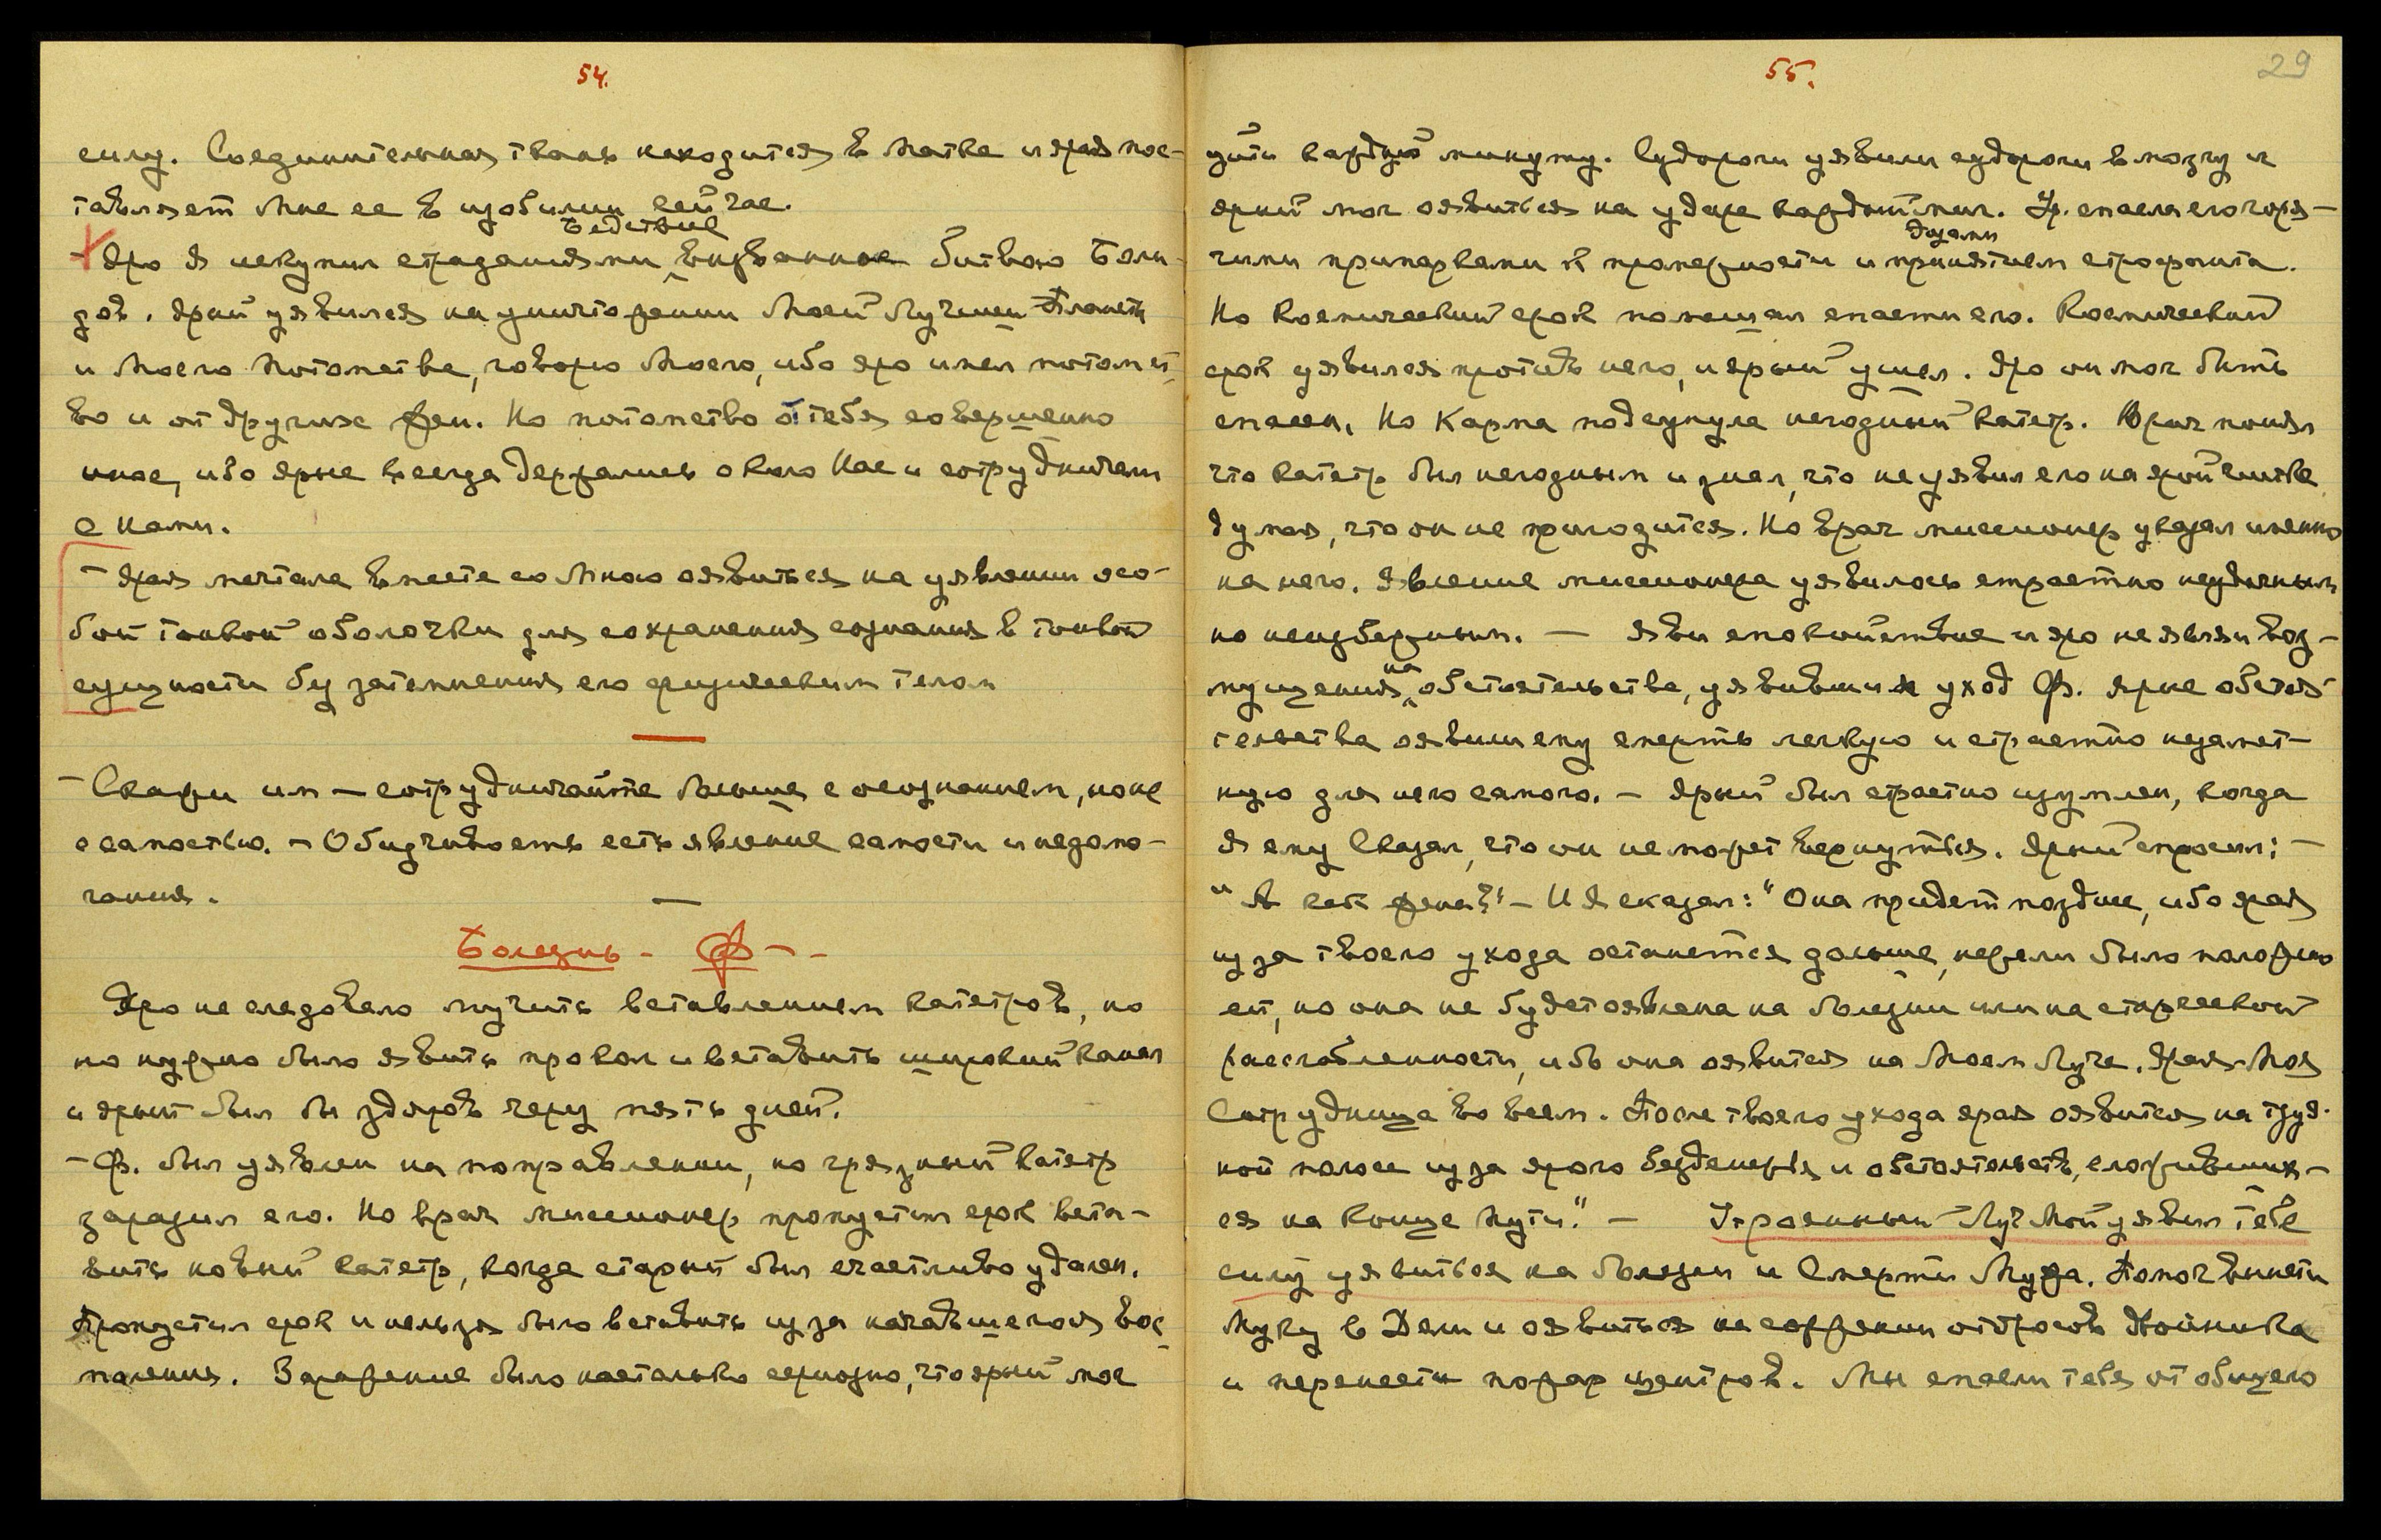 54.
силу. Соединительная ткань находится в Матве и ярая пос-
тавляет Мне ее в изобилии сейчас.
бедствие
- Яро Я искупил страданиями вызванное битвою Бели-
дов. Ярый уявился на уничтожении Моей Лучшей Планеты
и Моего Потомства, говорю Моего, ибо яро имел потомст-
во и от других жен. Но потомство от тебя совершенно
иное, ибо ярые всегда держались около Нас и сотрудничали
с нами.
- Ярая мечтала вместе со Мною оявиться на уявлении осо-
бой тонкой оболочки для сохранения сознания в тонкой
сущности без затемнения его физическим телом
- Скажи им - сотрудничайте больше с осознанием, но не
с самостью. - Обидчивость есть явление самости и недомо-
гания.
Болезнь - Ф - -
Яро не следовало мучить вставлением катетров, но
но нужно было явить прокол и вставить широкий канал
и ярый был бы здоров через пять дней.
- Ф. был уявлен на поправлении, но грязный катетр
заразил его. Но врач миссионер пропустил срок вста-
вить новый катетр, когда старый был счастливо удален.
Пропустил срок и нельзя было вставить из за начавшегося вос-
паления. Заражение было настолько серьозно, что ярый мог
55.
29
уйти каждую минуту. Судороги уявили судороги в мозгу и
ярый мог оявиться на ударе каждый миг. Ур. спасла его горя-
дозами
чими припарками к промежности и принятием строфанта.
Но Космический срок помешал спасти его. Космический
срок уявился против него, и ярый ушел. Яро он мог быть
спасен, Но Карма подсунула негодный катетр. Врач понял
что катетр был негодным и знал, что не уявил его на ярой чистке
думая, что он не пригодится. Но врач миссионер указал именно
на него. Явление миссионера уявилось страстно неудачным
но неизбежным. - Яви спокойствие и яро не являй воз-
на
мущения обстоятельства, уявившия уход Ф. Ярые обстоя-
тельства оявили ему смерть легкую и страстно незамет-
ную для него самого. - Ярый был страстно изумлен, когда
Я ему Сказал, что он не может вернуться. Ярый спросил; -
"А как жена?" - И Я сказал: "Она придет позднее, ибо ярая
из за твоего ухода останется дольше, нежели было положено
ей, но она не будет оявлена на болезни или на старческой
расслабленности, ибо она оявится на Моем Луче. Ярая Моя
Сотрудница во всем. После твоего ухода ярая оявится на труд-
ной полосе из за ярого безденежья и обстоятельств, сложивших-
ся на конце Пути." - Утроенный Луч Мой уявил тебе
силу уявиться на болезни и Смерти Мужа. Помог вынести
Муку в Дели и оявиться на сожжении отбросов Двойника
и перенести пожар центров. Мы спасли тебя от общего